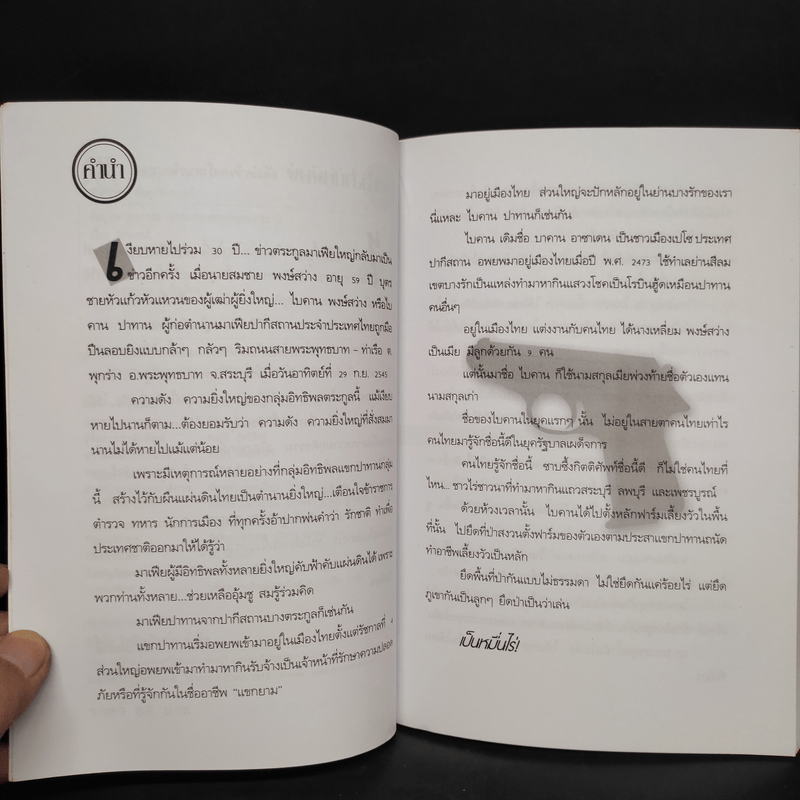 คำนำ
เงียบหายไปร่วม 30 ปี... ข่าวตระกูลมาเฟียใหญ่กลับมาเป็น
ข่าวอีกครั้ง เมื่อนายสมชาย พงษ์สว่าง อายุ 59 ปี บุตร
ชายหัวแก้วหัวแหวนของผู้เฒ่าผู้ยิ่งใหญ่... ไบคาน พงษ์สว่าง หรือไบ
คาน ปาทาน ผู้ก่อตำนานมาเฟียปากีสถานประจำประเทศไทยถูกมือ
ปืนลอบยิงแบบกล้าๆ กลัวๆ ริมถนนสายพระพุทธบาท - ท่าเรือ ต.
พุกร่าง อ.พระพุทธบาท จ.สระบุรี เมื่อวันอาทิตย์ที่ 29 ก.ย. 2545
ความดัง ความยิ่งใหญ่ของกลุ่มอิทธิพลตระกูลนี้ แม้เงียบ
หายไปนานก็ตาม...ต้องยอมรับว่า ความดัง ความยิ่งใหญ่ที่สั่งสมมา
นานไม่ได้หายไปแม้แต่น้อย
เพราะมีเหตุการณ์หลายอย่างที่กลุ่มอิทธิพลแขกปาทานกลุ่ม
นี้ สร้างไว้กับผืนแผ่นดินไทยเป็นตำนานยิ่งใหญ่...เตือนใจข้าราชการ
ตำรวจ ทหาร นักการเมือง ที่ทุกครั้งอ้าปากพ่นคำว่า รักชาติ ทำเพื่อ
ประเทศชาติออกมาให้ได้รู้ว่า
มาเฟียผู้มีอิทธิพลทั้งหลายยิ่งใหญ่คับฟ้าคับแผ่นดินได้ เพราะ
พวกท่านทั้งหลาย...ช่วยเหลืออุ้มชู สมรู้ร่วมคิด
มาเฟียปาทานจากปากีสถานบางตระกูลก็เช่นกัน
แขกปาทานเริ่มอพยพเข้ามาอยู่ในเมืองไทยตั้งแต่รัชกาลที่
ส่วนใหญ่อพยพเข้ามาทำมาหากินรับจ้างเป็นเจ้าหน้าที่รักษาความปลอด
ภัยหรือที่รู้จักกันในชื่ออาชีพ "แขกยาม"
มาอยู่เมืองไทย ส่วนใหญ่จะปักหลักอยู่ในย่านบางรักของเรา
นี่แหละ ไบคาน ปาทานก็เช่นกัน
ไบคาน เดิมชื่อ บาคาน อาซาเดน เป็นชาวเมืองเปโซ ประเทศ
ปากีสถาน อพยพมาอยู่เมืองไทยเมื่อปี พ.ศ. 2473 ใช้ทำเลย่านสีลม
เขตบางรักเป็นแหล่งทำมาหากินแสวงโชคเป็นโรบินฮู้ดเหมือนปาทาน
คนอื่นๆ
อยู่ในเมืองไทย แต่งงานกับคนไทย ได้นางเหลี่ยม พงษ์สว่าง
เป็นเมีย มีลูกด้วยกัน 9 คน
แต่นั้นมาชื่อ ไบคาน ก็ใช้นามสกุลเมียพ่วงท้ายชื่อตัวเองแทน
นามสกุลเก่า
ชื่อของไบคานในยุคแรกๆ นั้น ไม่อยู่ในสายตาคนไทยเท่าไร
คนไทยมารู้จักชื่อนี้ดีในยุครัฐบาลเผด็จการ
คนไทยรู้จักชื่อนี้ ซาบซึ้งกิตติศัพท์ชื่อนี้ดี ก็ไม่ใช่คนไทยที่
ไหน... ชาวไร่ชาวนาที่ทำมาหากินแถวสระบุรี ลพบุรี และเพชรบูรณ์
ด้วยห้วงเวลานั้น ไบคานได้ไปตั้งหลักฟาร์มเลี้ยงวัวในพื้น
ที่นั้น ไปยึดที่ป่าสงวนตั้งฟาร์มของตัวเองตามประสาแขกปาทานถนัด
ทำอาชีพเลี้ยงวัวเป็นหลัก
ยึดพื้นที่ป่ากันแบบไม่ธรรมดา ไม่ใช่ยึดกันแค่ร้อยไร่ แต่ยึด
ภูเขากันเป็นลูกๆ ยึดป่าเป็นว่าเล่น
เป็นหมื่นไร่!